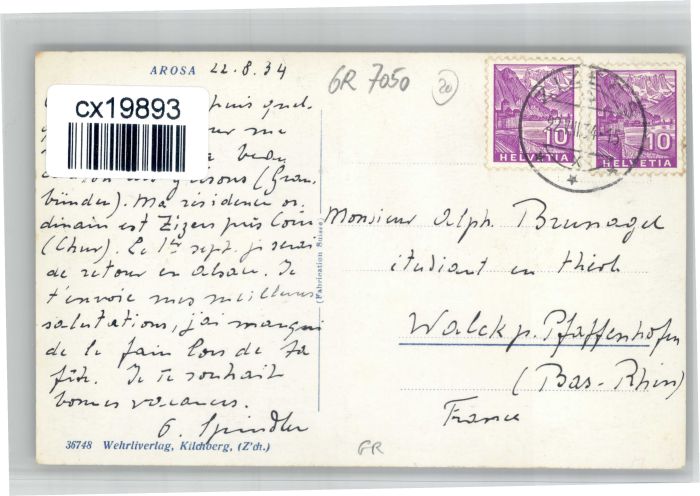 AROSA 22.8.34
GR 7050
20
cx19893
puis quel-
me
beau
canton des Grisons (Grau-
bünden). Ma résidence or-
dinaire est Zizers près Coire
(Chur). Le 1er sept. je serai
de retour en Alsace. Je
t'envoie mes meilleures
salutations, j'ai manqué
de le faire lors de ta
fête. Je te souhait
bonnes vacances.
G. Spindler
36748 Wehrliverlag, Kilchberg, (Z'ch.)
(Fabrication Suisse)
ZIZERS
10 HELVETIA
10 HELVETIA
Monsieur Alph. Brunagel
étudiant en théol.
Walck p. Pfaffenhofen
(Bas-Rhin)
France
GR